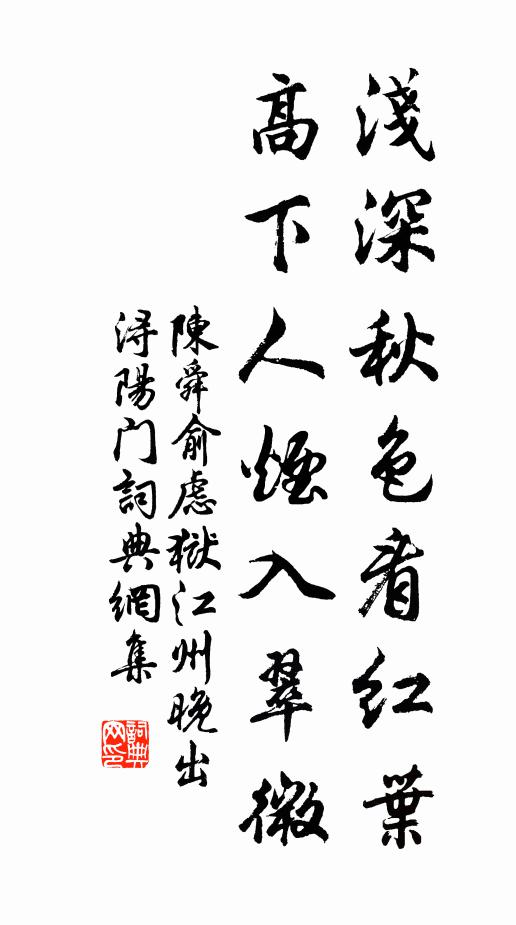 淺深秋色看紅葉
高下人煙入翠微
陳舜俞慮獄江州晚出
潯陽门詞典網集
詞典網印